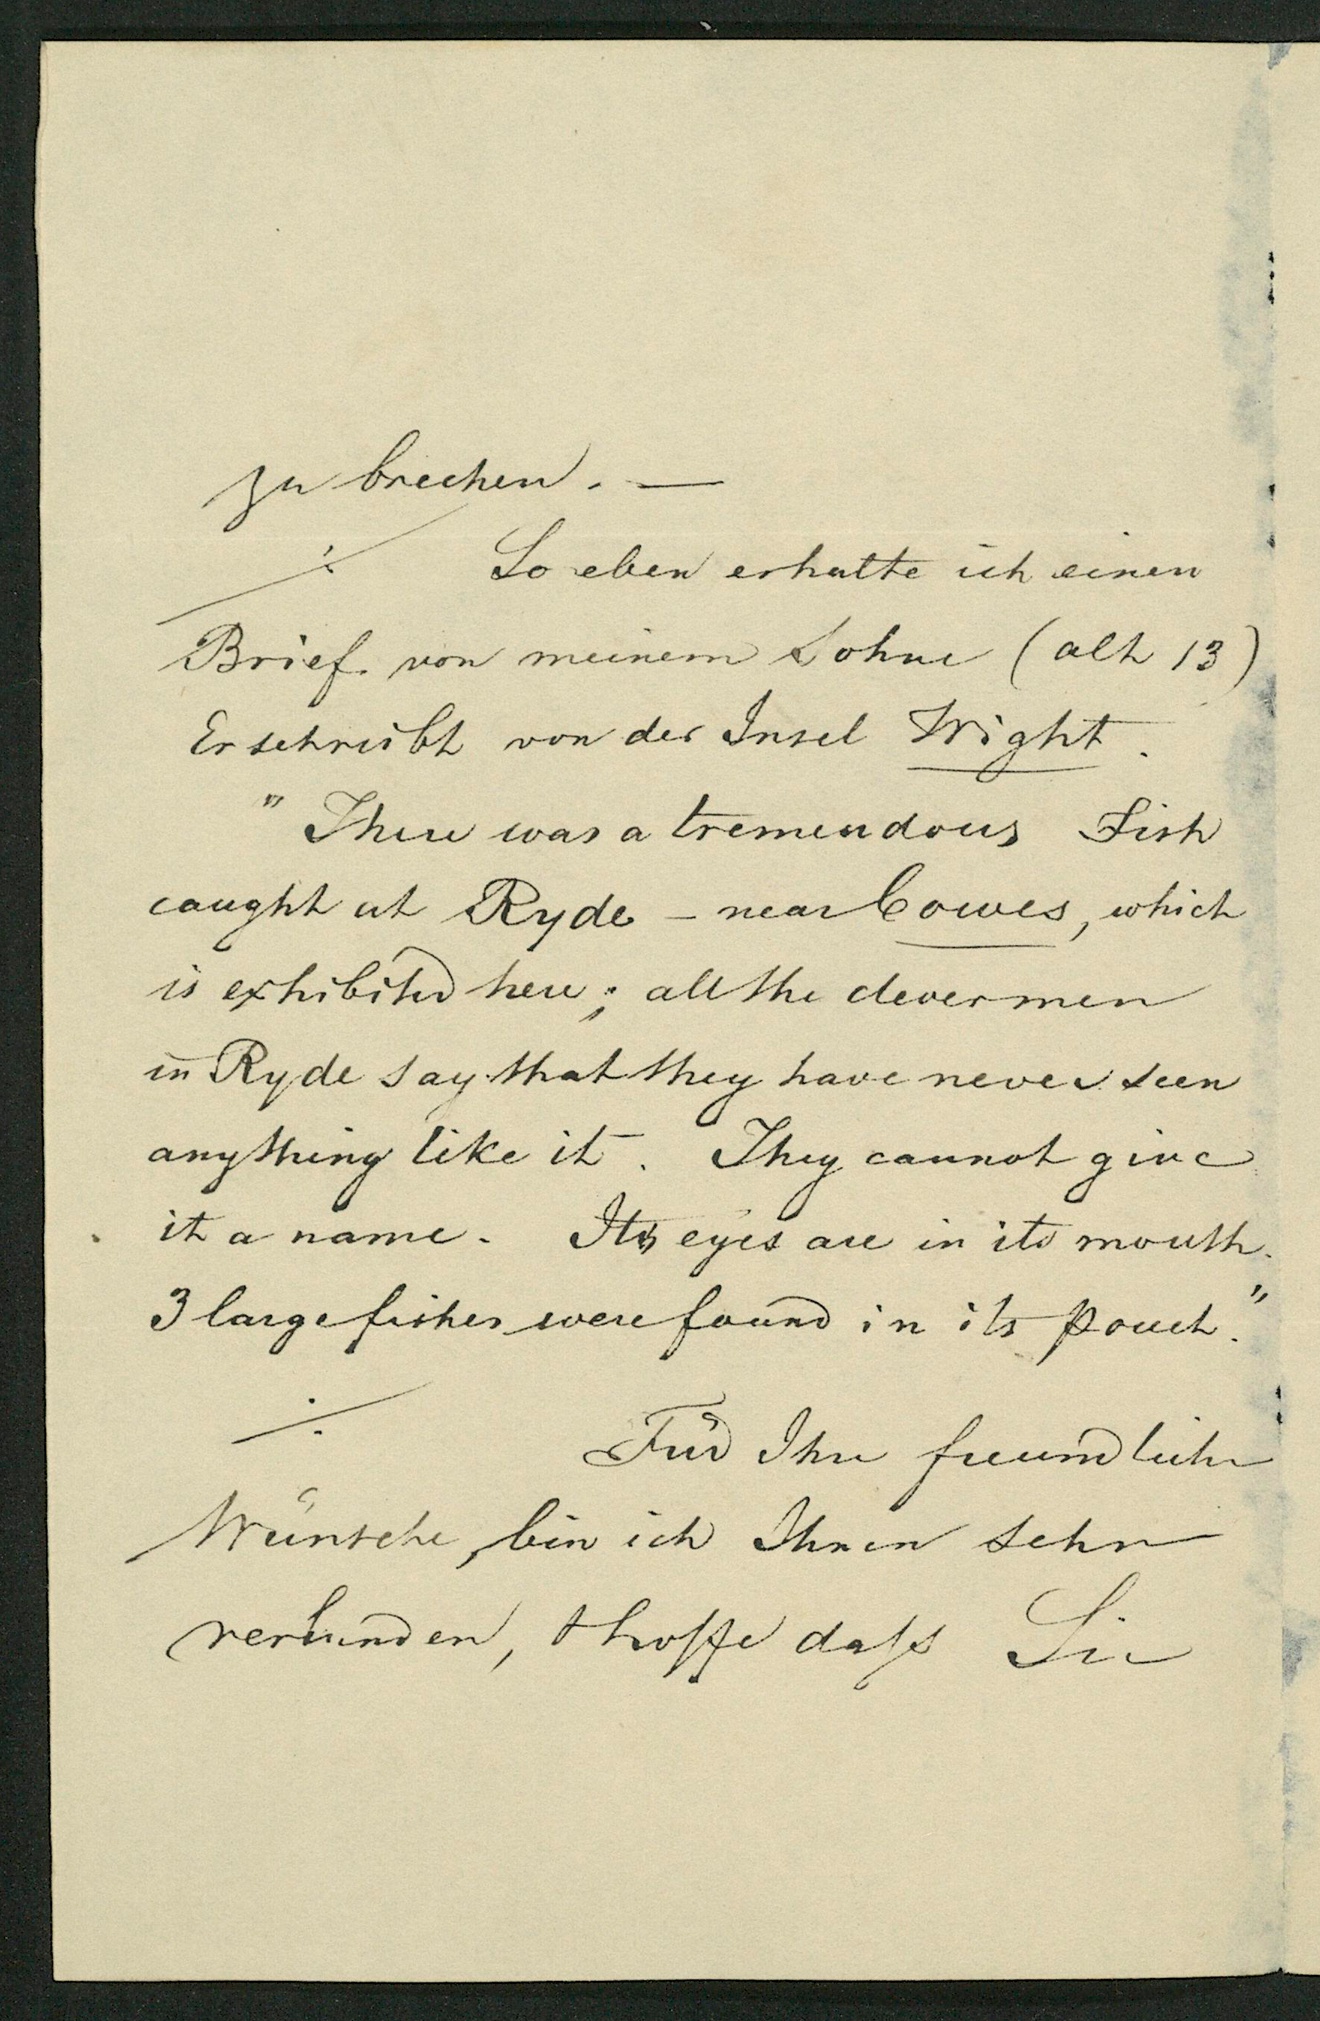 zu brechen. —
÷ So eben erhalte ich einen
Brief von meinem Sohne (alt 13)
Er schreibt von der Insel Wight.
"There was a tremendous Fish
caught at Ryde – near Cowes, which
is exhibited here; all the clever men
in Ryde say that they have never seen
anything like it. They cannot give
it a name. Its eyes are in its mouth.
3 large fishes were found in its pouch."
÷ Für Ihre freundliche
Wünsche, bin ich Ihnen sehr
verbunden, & hoffe daſs Sie